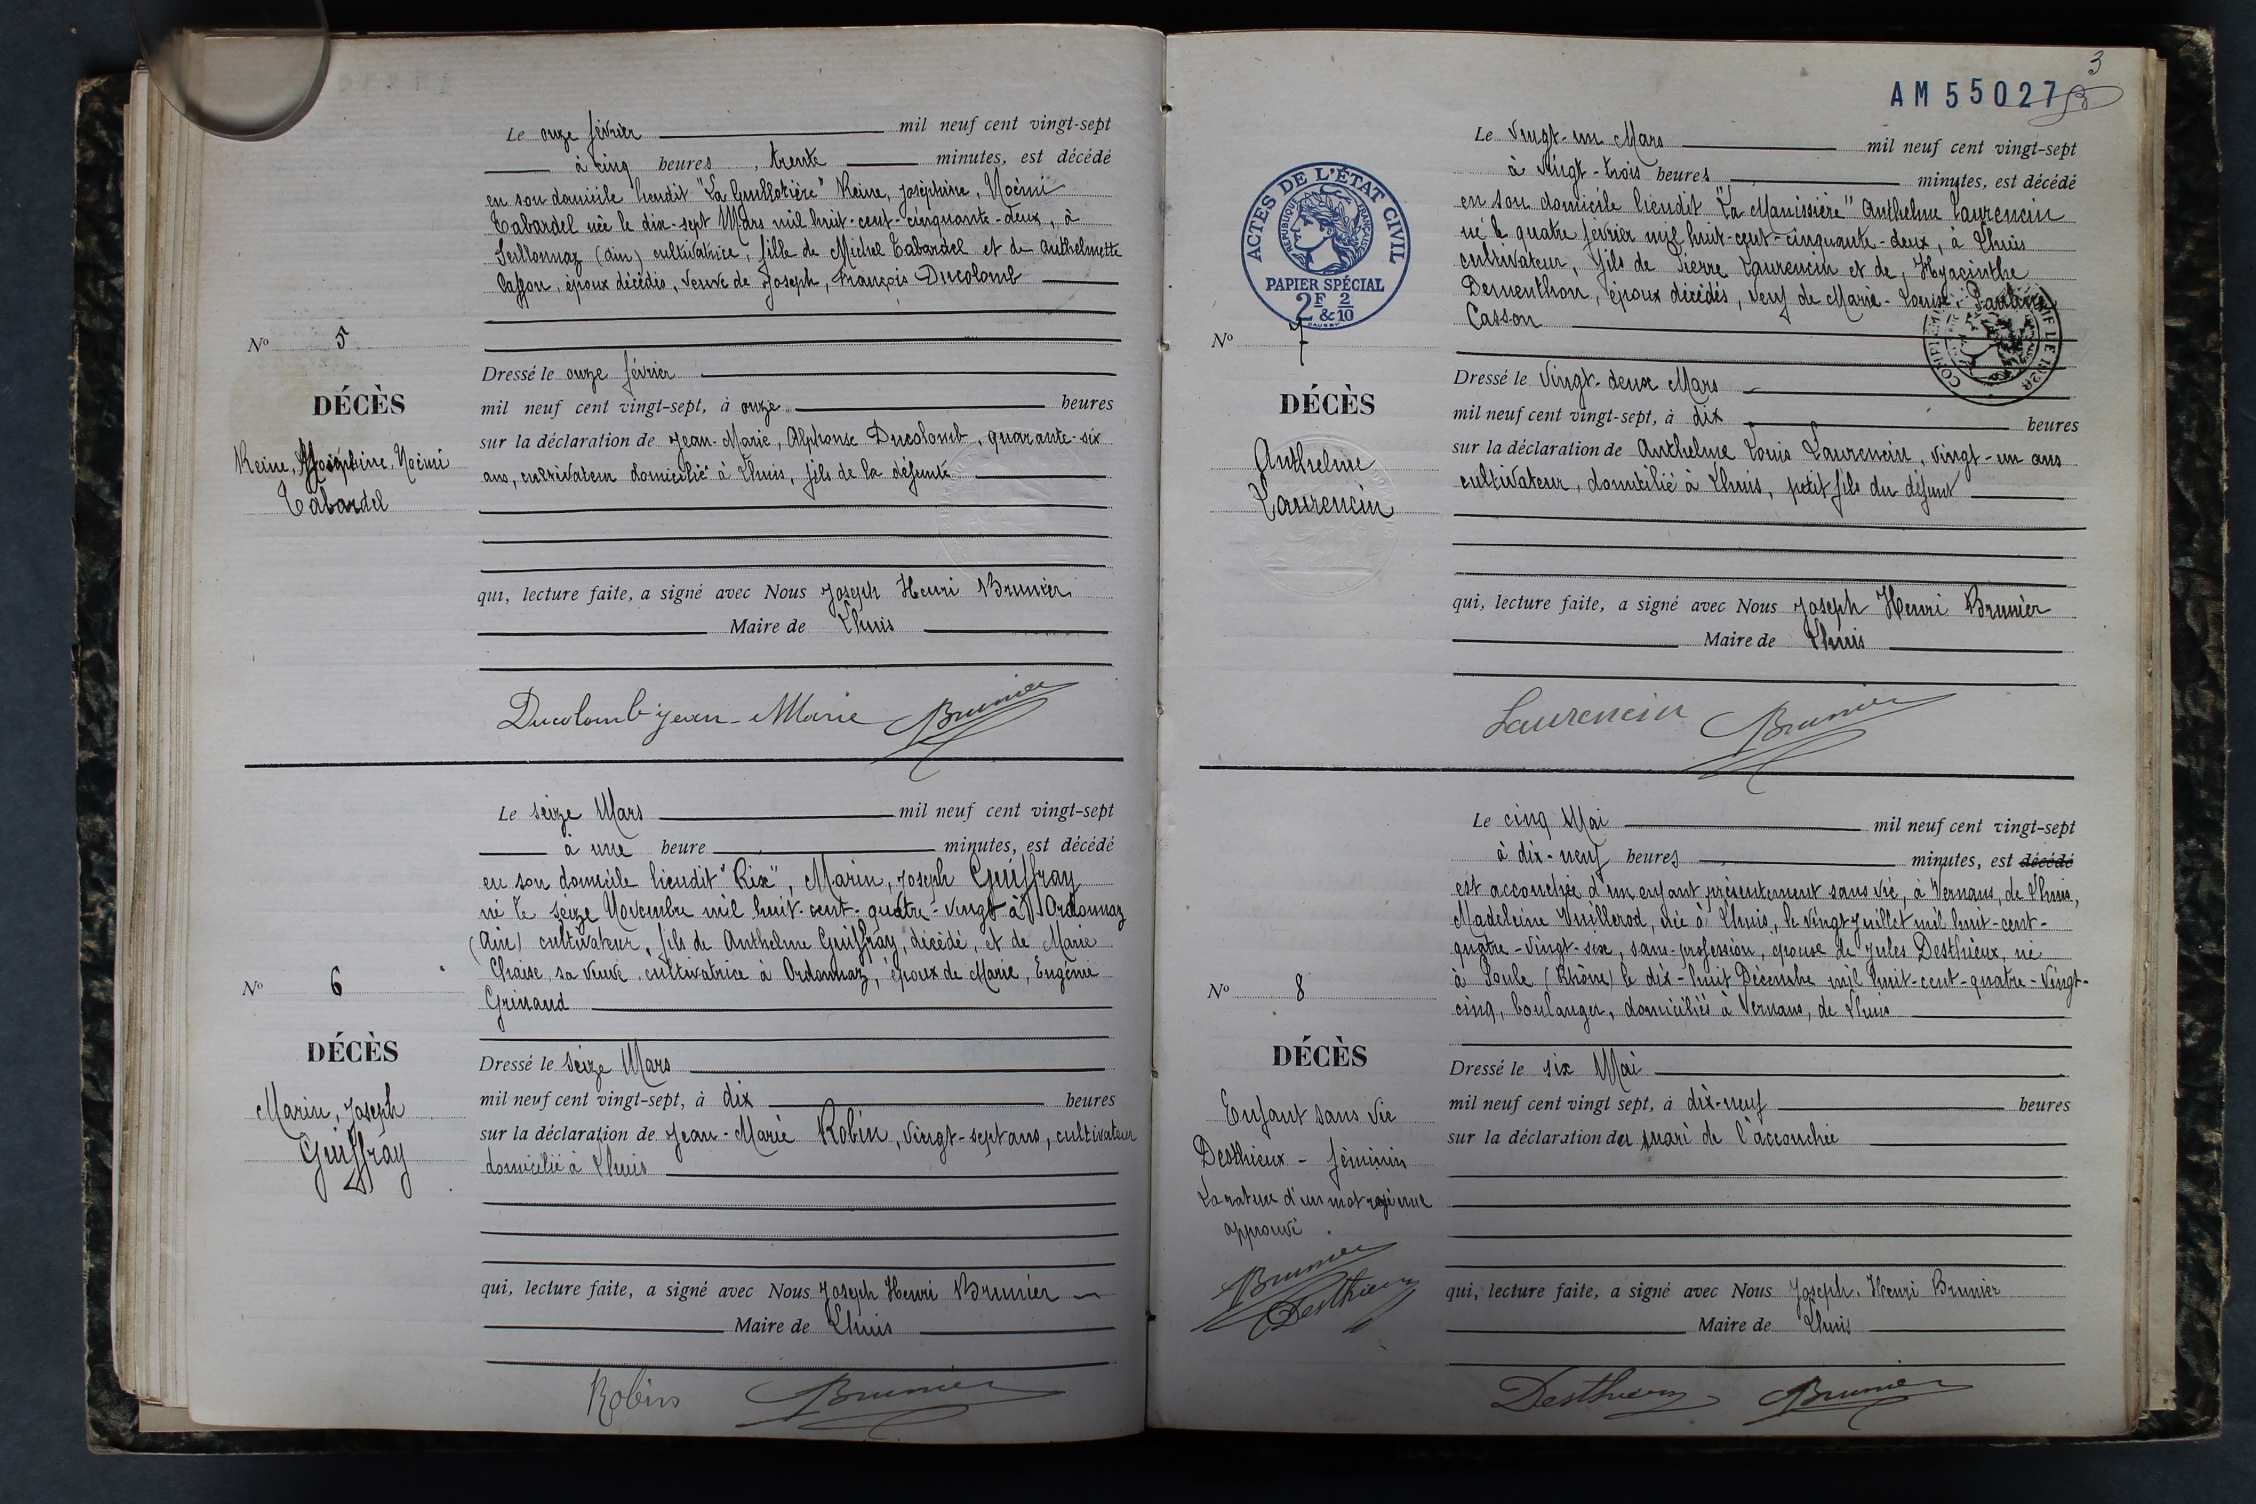 Le onze février mil neuf cent vingt-sept
à cinq heures, trente minutes, est décédé
en son domicile lieudit "La Guillotière" Reine, Joséphine, Noémi
Tabardel née le dix-sept Mars mil huit-cent-cinquante-deux, à
Seillonnaz (Ain) cultivatrice, fille de Michel Tabardel et de Anthelmette
époux décédés, veuve de Joseph, François Ducolomb
No 5
DÉCÈS
Reine, Joséphine, Noémi
Tabardel
Dressé le onze février
mil neuf cent vingt-sept, à onze heures
sur la déclaration de Jean-Marie, Alphonse Ducolomb, quarante-six
ans, cultivateur domicilié à Lhuis, fils de la défunte
qui, lecture faite, a signé avec Nous Joseph Henri Brunier
Maire de Lhuis
Ducolomb Jean-Marie Brunier
Le seize Mars mil neuf cent vingt-sept
à une heure minutes, est décédé
en son domicile lieudit "Rix", Marin, Joseph Guiffray
né le seize Novembre mil huit-cent-quatre-vingt à Ordonnaz
(Ain) cultivateur, fils de Anthelme Guiffray, décédé, et de Marie
Chaise, sa veuve, cultivatrice à Ordonnaz, époux de Marie, Eugénie
Grinand
No 6
DÉCÈS
Marin, Joseph
Guiffray
Dressé le seize Mars
mil neuf cent vingt-sept, à dix heures
sur la déclaration de Jean-Marie Robin, vingt-sept ans, cultivateur
domicilié à Lhuis
qui, lecture faite, a signé avec Nous Joseph Henri Brunier
Maire de Lhuis
Robin Brunier
3
AM 55027
ACTES DE L'ÉTAT CIVIL
RÉPUBLIQUE FRANÇAISE
PAPIER SPÉCIAL
2F & 2/10
Le vingt-un Mars mil neuf cent vingt-sept
à vingt-trois heures minutes, est décédé
en son domicile lieudit "La Manissière" Anthelme Laurencin
né le quatre février mil huit-cent-cinquante-deux, à Lhuis
cultivateur, fils de Pierre Laurencin et de, Hyacinthe
Dementhon, époux décédés, veuf de Marie-Louise, Pauline
Casson
No 7
DÉCÈS
Anthelme
Laurencin
Dressé le vingt-deux Mars
mil neuf cent vingt-sept, à dix heures
sur la déclaration de Anthelme Louis Laurencin, vingt-un ans
cultivateur, domicilié à Lhuis, petit fils du défunt
qui, lecture faite, a signé avec Nous Joseph Henri Brunier
Maire de Lhuis
Laurencin Brunier
Le cinq Mai mil neuf cent vingt-sept
à dix-neuf heures minutes, est décédé
est accouchée d'un enfant présentement sans vie, à Vernans, de Lhuis,
Madeleine Vuillerod, née à Lhuis, le vingt Juillet mil huit-cent-
quatre-vingt-six, sans-profession, épouse de Jules Desthieux, né
à Poule (Rhône) le dix-huit Décembre mil huit-cent-quatre-vingt-
cinq, boulanger, domiciliés à Vernans, de Lhuis
No 8
DÉCÈS
Enfant sans vie
Desthieux - féminin
La rature d'un mot rayé nul
approuvé.
Brunier
Desthieux
Dressé le six Mai
mil neuf cent vingt sept, à dix-neuf heures
sur la déclaration du mari de l'accouchée
qui, lecture faite, a signé avec Nous Joseph, Henri Brunier
Maire de Lhuis
Desthieux Brunier